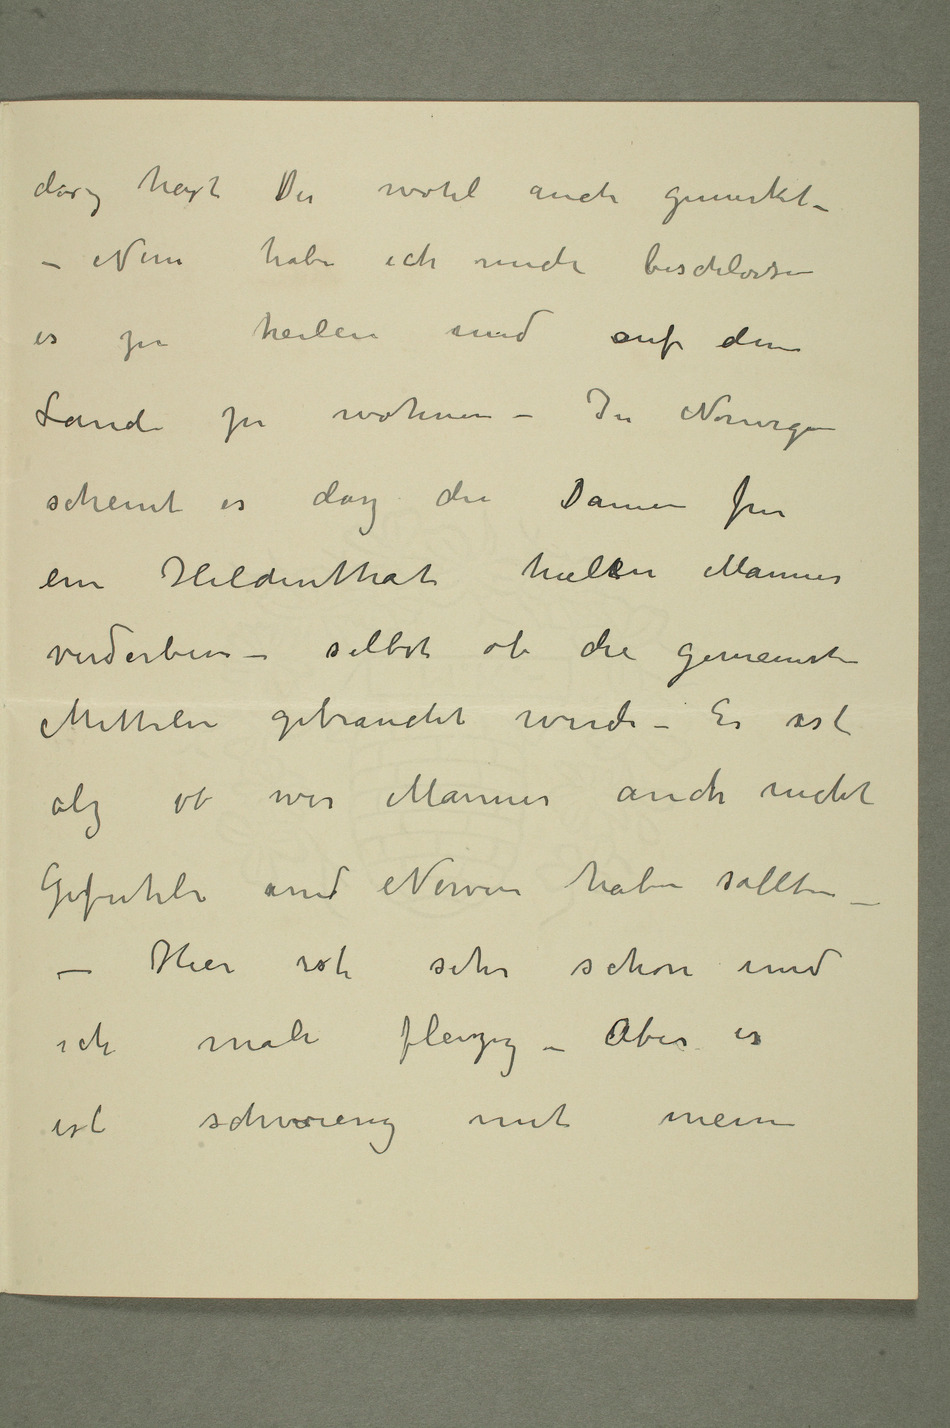 dasz hast Du wohl auch gemerkt –
– Nun habe ich mich beschlossen
es zu heilen und auf dem
Lande zu wohnen – In Norwegen
scheint es dasz die Damen fur
ein Heldenthat halten Manner
verderben – selbst ob die gemeinste
Mitteln gebraucht wurde – Es ist
alz ob wir Manner auch nicht
Gefuhle und Nerven haben sollten –
– Hier ist sehr schon und
ich male fleizig – Aber es
ist schwierig mit mein